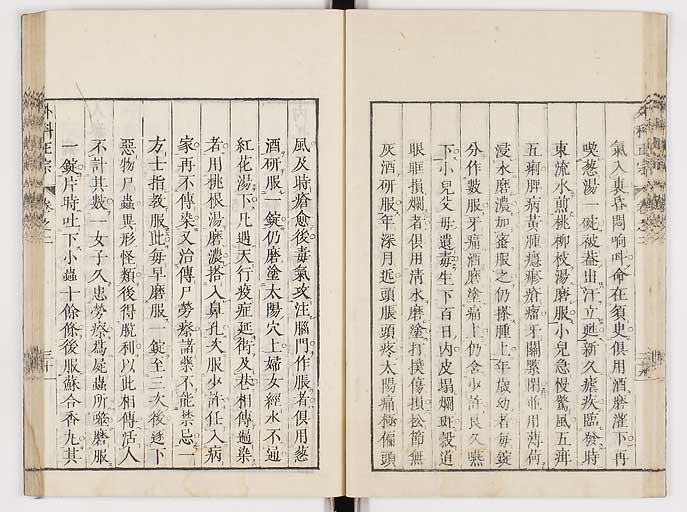 氣入裏昏悶响叫命在須臾俱用酒磨灌下再
喫葱湯一碗被蓋出汗立甦新久瘧疾臨發時
東流水煎桃柳枝湯磨服小兒急慢驚風五疳
五痢脾病黃腫癮疹瘡瘤牙關緊閉並用薄荷
浸水磨濃加蜜服之仍搽腫上年歲幼者每錠
分作數服牙痛酒磨塗痛上仍含少許良久嚥
下小兒父母遺毒生下百日內皮塌爛斑穀道
眼眶損爛者俱用清水磨塗打撲傷損松節無
灰酒研服年深月近頭脹頭疼太陽痛極偏頭
風及時瘡愈後毒氣攻注腦門作脹者俱用葱
酒研服一錠仍磨塗太陽穴上婦女經水不通
紅花湯下凡遇天行疫症延街及巷相傳遍染
者用桃根湯磨濃搭入鼻孔次服少許任入病
家再不傳染又治傳尸勞瘵諸藥不能禁忌一
方士指教服此每早磨服一錠至三次後逐下
惡物尸蟲異形怪類後得脫利以此相傳活人
不計其數一女子久患勞瘵為屍蟲所噬磨服
一錠片時吐下小蟲十餘條後服蘇合香丸其
外科正宗
卷之二
三十